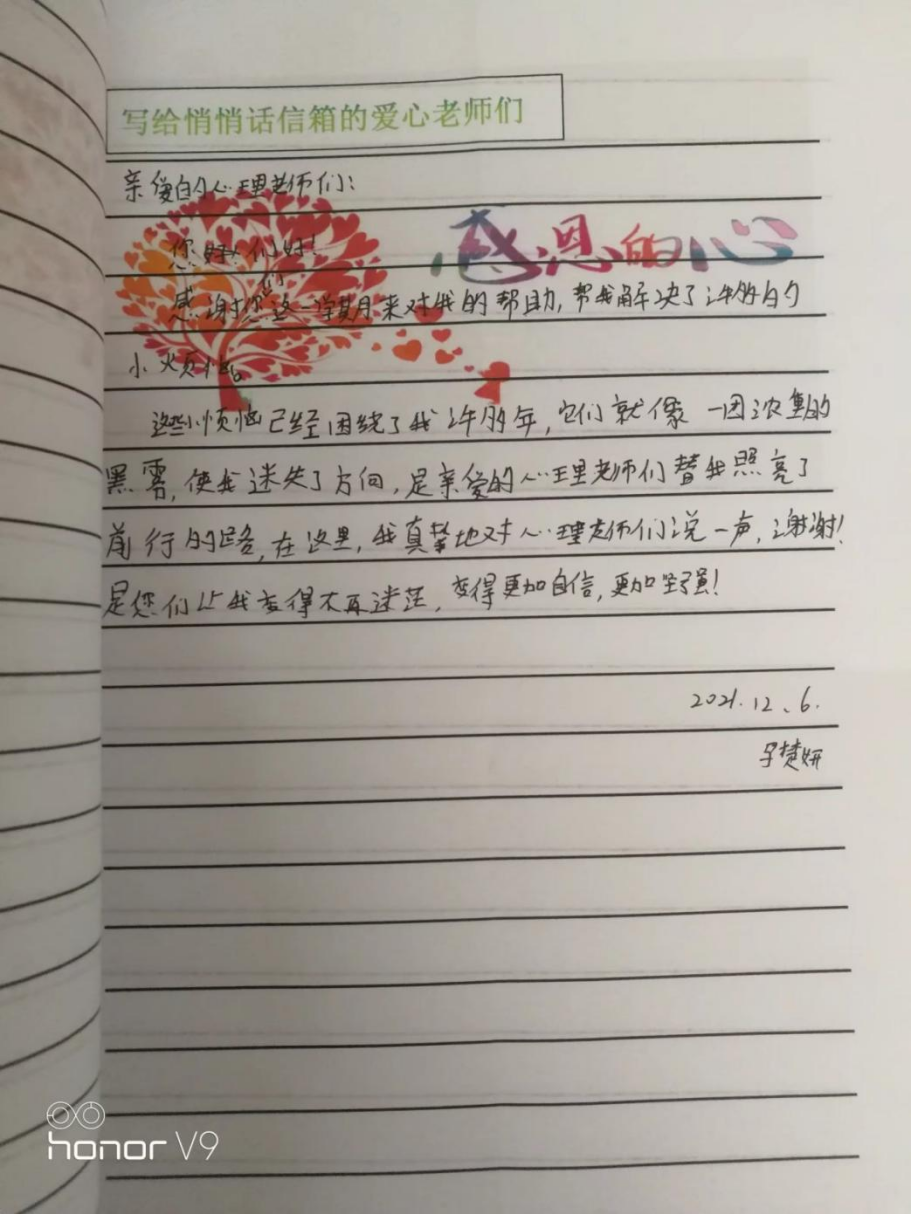 写给悄悄话信箱的爱心老师们
亲爱的心理老师们:
感恩的心
您好!
感谢您们这一学期来对我的帮助,帮我解决了许多的
小烦恼。
这些小烦恼已经困绕了我许多年,它们就像一团浓重的
黑雾,使我迷失了方向,是亲爱的心理老师们替我照亮了
前行的路,在这里,我真挚地对心理老师们说一声,谢谢!
是您们让我变得不再迷茫,变得更加自信,更加坚强!
2021.12.6.
楚妍
honor V9